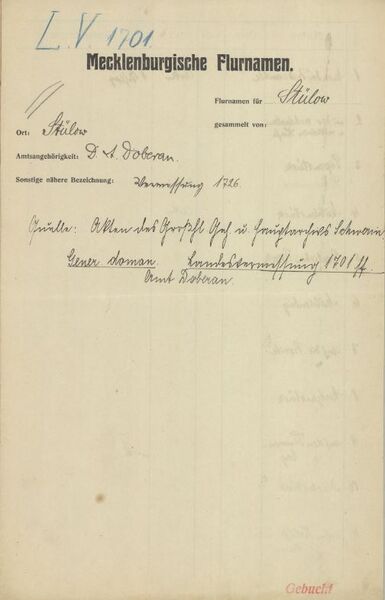 L.V 1701.
Mecklenburgische Flurnamen.
Flurnamen für Stülow
gesammelt von:
Ort: Stülow
Amtsangehörigkeit: D. A. Doberan.
Sonstige nähere Bezeichnung: Vermessung 1726.
Quelle: Akten des Großhl Geh u. Hauptarchivs Schwerin
Gener. doman. Landesvermessung 1701 ff.
Amt Doberan.
Gebucht